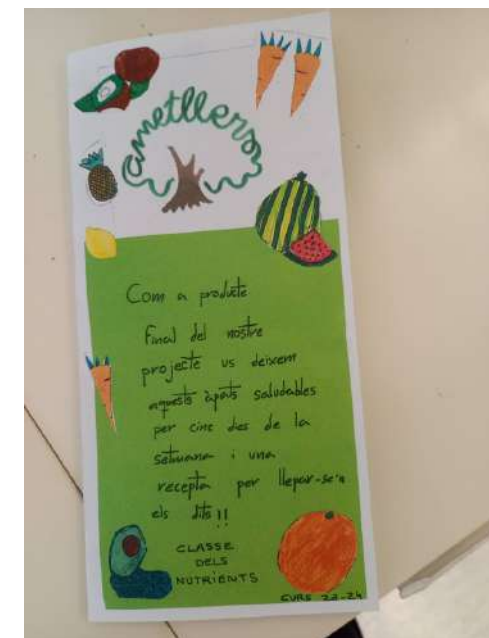 ametllers
Com a producte
final del nostre
projecte us deixem
aquests àpats saludables
per cinc dies de la
setmana i una
recepta per llepar-se'n
els dits!!
CLASSE
DELS
NUTRIENTS
CURS 23-24